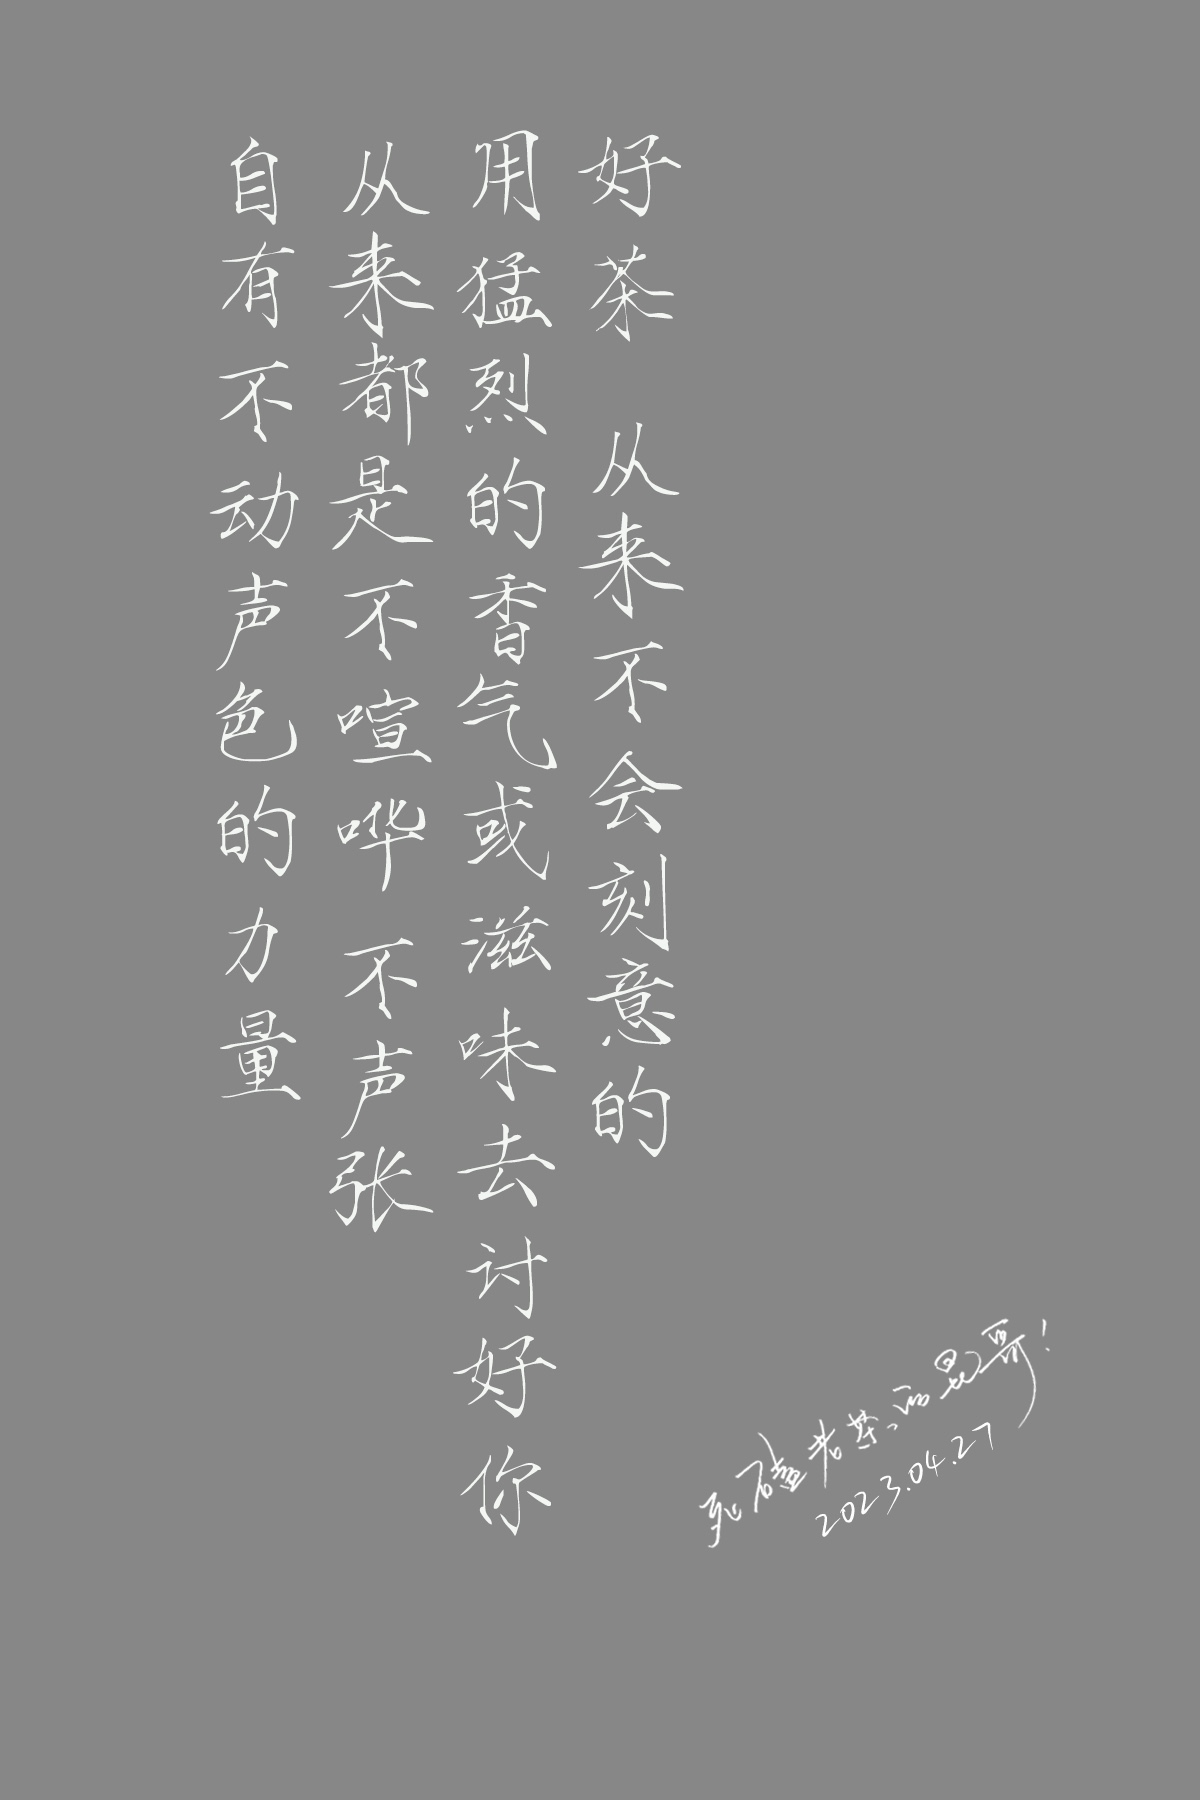 好茶 从来不会刻意的
用猛烈的香气或滋味去讨好你
从来都是不喧哗 不声张
自有不动声色的力量
死磕老茶、的昆哥！
2023.04.27